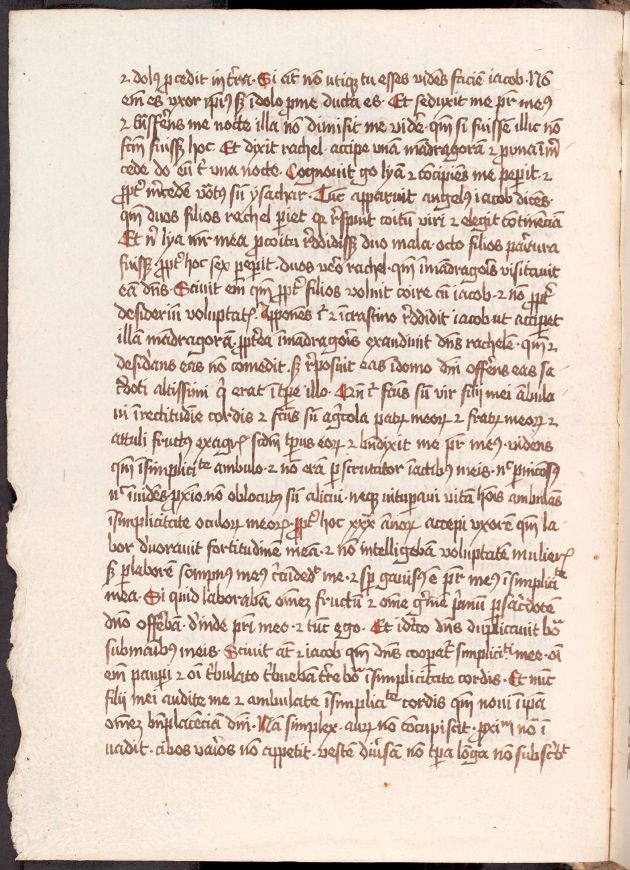 ⁊ dolꝰ ꝓcedit in t̄ra. Si aūt nō utiqꝫ tu esses vidēs faciē iacob. Nō
em̄ es vxor ipiꝰ sꝫ ī dolo ꝓ me ducta es. Et seduxit me pr̄ meꝰ
⁊ t̄nsferēs me nocte illa nō dimisit me vidēr. qm̄ si fuissē illic nō
fc̄m fuissꝫ hoc. Et dixit rachel. accipe vnā mādragorā ⁊ ꝓ vna īm̄
cede do eū t̄ vna nocte. Cognouit g̊ lyā ⁊ cōcipiēs me peperit ⁊
ꝓpt̄ m̄cedem vōtꝰ sū ysachar. Tūc apparuit angelꝰ iacob dicēs.
qm̄ duos filios rachel pariet qr r̄spuit coitū viri ⁊ elegit cōtinēciā
Et nͥ lya mr̄ mea ꝓ coitu r̄ddidissꝫ duo mala. octo filios paritura
fuissꝫ. ꝓpt̄ hoc sex peperit. duos vero rachel. qm̄ ī mādragoris visitauit
eā dn̄s. Sciuit em̄ qm̄ ꝓpt̄ filios voluit coire cū iacob. ⁊ nō ꝓpt̄
desideriū voluptatis. Apponēs t̄ ⁊ ī crastino r̄ddidit iacob ut acciperet
illā mādragorā. ꝓpt̄ea ī mādragoris exaudiuit dn̄s rachelē. qm̄ ⁊
desiderās eas nō comedit. sꝫ r̄posuit eas ī domo dm̄ offerēs eas sa
cerdoti altissimi qͥ erat ī tp̄e illo. Cū t̄ fc̄us sū vir filij mei ābula
ui ī rectitudīe cordis ⁊ fc̄us sū agͥcola patrꝝ meoꝝ ⁊ fratrꝝ meoꝝ ⁊
attuli fructꝰ ex agris scdm̄ tp̄us eoꝝ ⁊ bn̄dixit me pr̄ meꝰ. videns
qm̄ ī simplicitᵗᵉ ambulo. ⁊ nō erā perscrutator ī actibꝰ meis. nͨ pnicosꝰ
nͨ īuidēs ꝓxīo. nō oblocutꝰ sū alicui. neqꝫ uituperaui vitā hoīs ambulās
ī simplicitate oculoꝝ meoꝝ. ꝓpt̄ hoc xxx annoꝝ accepi vxorē qm̄ la
bor deuorauit fortitudinē meā. ⁊ nō intelligebā voluptatem mulieris
sꝫ per laborē sompnꝰ meꝰ circūdedͭ me. ⁊ sp̄ gauisꝰ ē pr̄ meꝰ ī simplicitᵗᵉ
mea. Si quid laborabā. omeꝫ fructū ⁊ om̄e germe pͥmū per sacerdotē
dn̄o offerebā. deinde pr̄i meo ⁊ tūc ego. Et idcͦo dn̄s duplicauit boͣ
sub manibꝰ meis. Sciuit aūt ⁊ iacob qm̄ dn̄s cooparͭ simplicitᵗⁱ mee. oī
em̄ pauperi ⁊ oī tribulato tribuebā t̄re boͣ ī simplicitate cordis. Et nūc
filij mei audite me ⁊ ambulate ī simplicitᵗᵉ cordis qm̄ noui ī ipsa
omeꝫ bn̄placenciā dn̄i. Nā simplex. aurū nō cōcupiscit. ꝓximͫ nō ī
vadit. cibos varios nō appetit. vestē diuersam nō tp̄a lōga nō subscͥbit